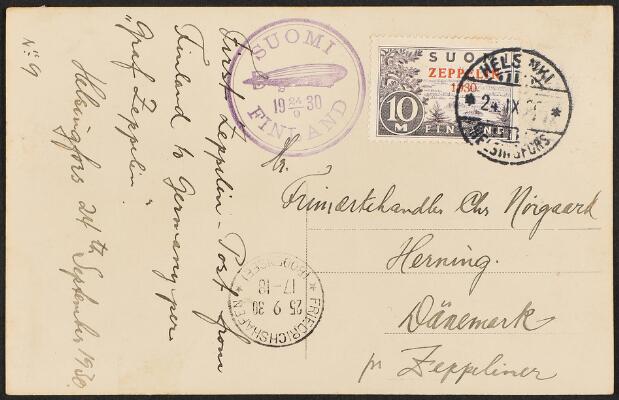 Nº 9
Helsingfors 24th September 1930.
First Zeppelin-Post from
Finland to Germany per
"Graf Zeppelin".
SUOMI
19 24/9 30
FINLAND
SUOMI
ZEPPELIN
1930
10
M
FINLAND
HELSINKI
24.IX.30
HELSINGFORS
Hr.
Frimærkehandler Chr Nörgaard
Herning.
Dänemark
pr Zeppeliner
FRIEDRICHSHAFEN
25 9 30
17-18
(BODENSEE)